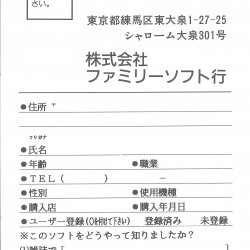 さい。
東京都練馬区東大泉1-27-25
シャローム大泉301号
株式会社
ファミリーソフト行
●住所 〒
フリガナ
●氏名
●年齢 ●職業
●TEL( ) −
●性別 ●使用機種
●購入店 ●購入年月日
●ユーザー登録(○を付けて下さい) 登録済み 未登録
※このソフトをどうやって知りましたか?
(1)雑誌で[